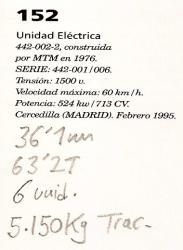 152
Unidad Eléctrica
442-002-2, construida
por MTM en 1976.
SERIE: 442-001/006.
Tensión: 1500 v.
Velocidad máxima: 60 km/h.
Potencia: 524 kw/713 CV.
Cercedilla (MADRID). Febrero 1995.
36'1mm
63'2T
6 unid.
5.150Kg Trac-